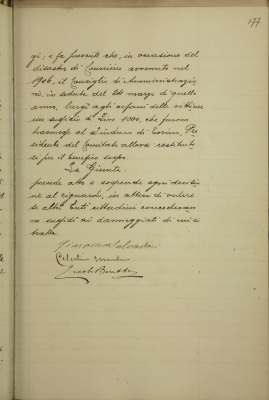 177
gi; e fa presente che, in occasione del
disastro di Courrières avvenuto nel
1906, il Consiglio di Amministrazio
ne, in seduta del 24 marzo di quello
anno, largì agli orfani delle vittime
un sussidio di Lire 1000, che furono
trasmesse al Sindaco di Torino, Pre
sidente del Comitato allora costituito
si per il benefico scopo.
La Giunta
prende atto e sospende ogni decisio
ne al riguardo, in attesa di vedere
se altri Enti cittadini concederan
no sussidi ai danneggiati di cui si
tratta.